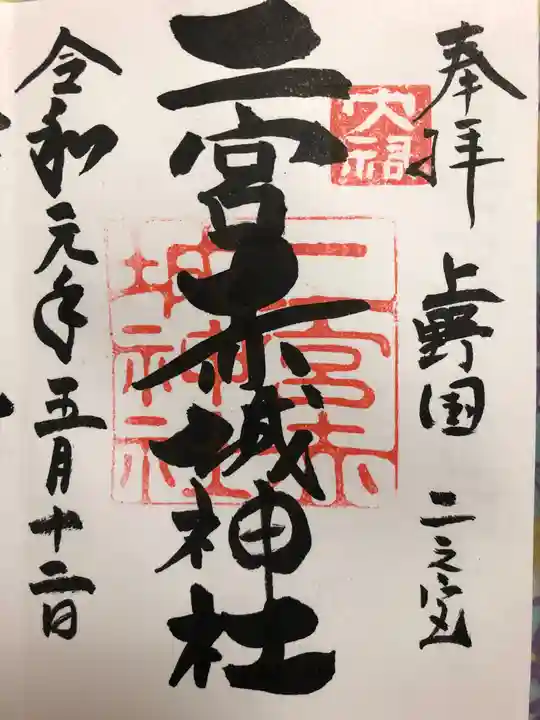 奉拝
上野国 二之宮
大福
二宮赤城神社
二宮赤
城神社
令和元年五月十二日